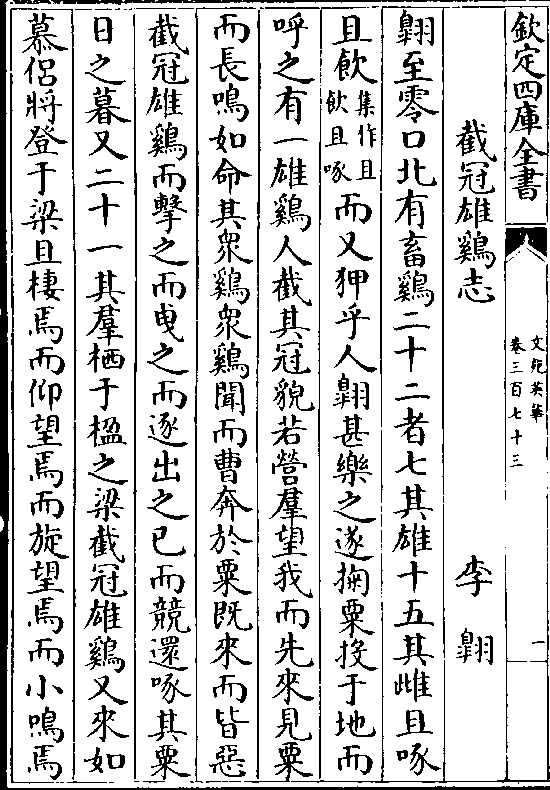 欽定四庫全書
文苑英華
卷三百七十三
一
截冠雄鷄志
李翺
翺至零口北有畜鷄二十二者七其雄十五其雌且啄
且飲集作且飲且啄而又狎乎人翺甚樂之遂掬粟投于地而
呼之有一雄鷄人截其冠貌若營羣望我而先來見粟
而長鳴如命其衆鷄衆鷄聞而曹奔於粟既來而皆惡
截冠雄鷄而擊之而曵之而逐出之已而競還啄其粟
日之暮又二十一其羣栖于楹之梁截冠雄鷄又來如
慕侣將登于梁且棲焉而仰望焉而旋望焉而小鳴焉